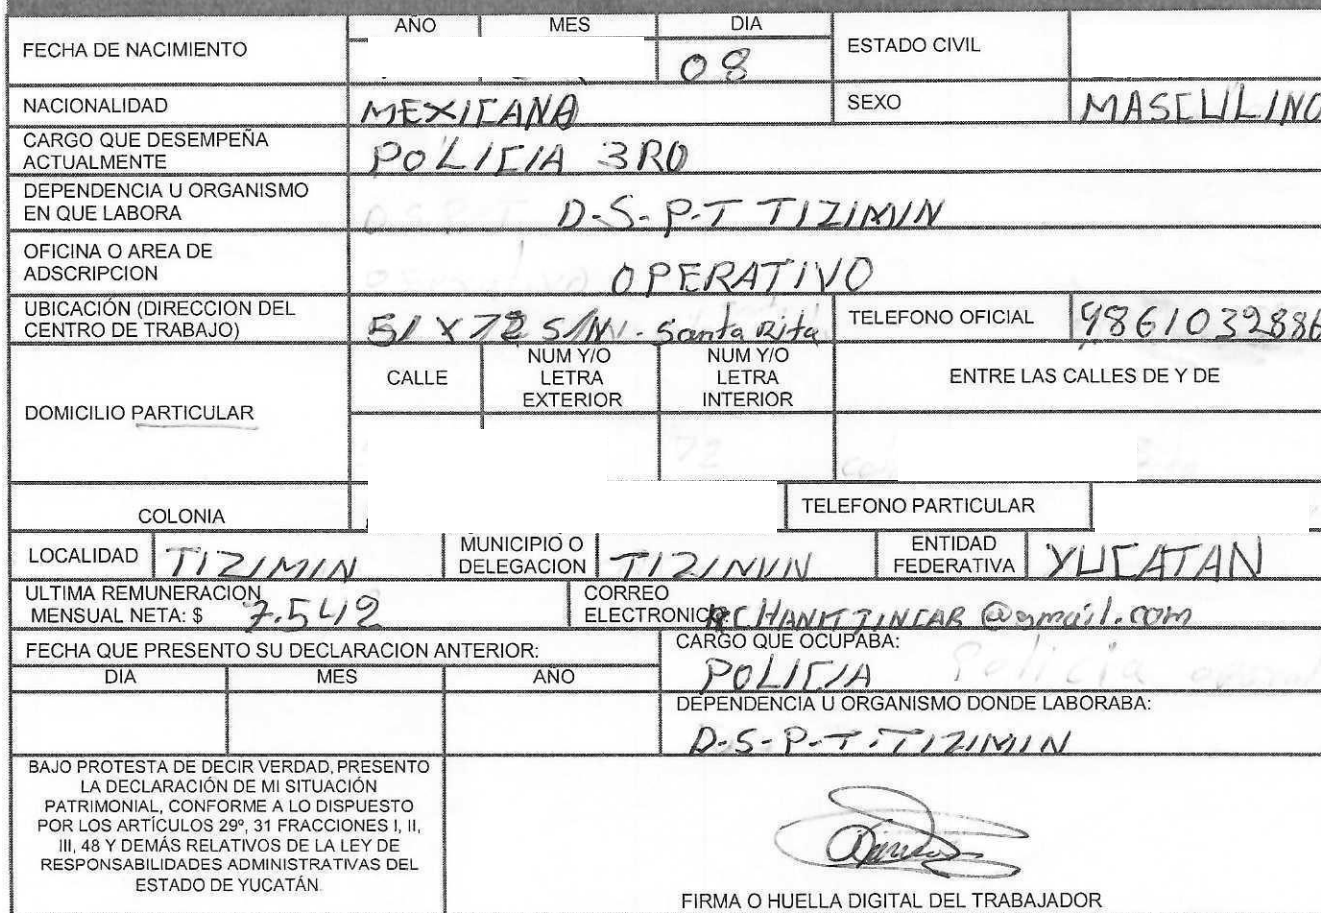 FECHA DE NACIMIENTO
AÑO MES DIA
08
ESTADO CIVIL
NACIONALIDAD MEXICANA SEXO MASCULINO
CARGO QUE DESEMPEÑA
ACTUALMENTE
POLICIA 3RO
DEPENDENCIA U ORGANISMO
EN QUE LABORA
D-S-P-T TIZIMIN
OFICINA O AREA DE
ADSCRIPCION
OPERATIVO
UBICACIÓN (DIRECCION DEL
CENTRO DE TRABAJO)
51 X 72 S/N - Santa Rita
TELEFONO OFICIAL 9861032886
DOMICILIO PARTICULAR
CALLE
NUM Y/O
LETRA
EXTERIOR
NUM Y/O
LETRA
INTERIOR
ENTRE LAS CALLES DE Y DE
72
COLONIA
TELEFONO PARTICULAR
LOCALIDAD TIZIMIN
MUNICIPIO O
DELEGACION
TIZIMIN
ENTIDAD
FEDERATIVA
YUCATAN
ULTIMA REMUNERACION
MENSUAL NETA: $ 7.542
CORREO
ELECTRONICO: @gmail.com
FECHA QUE PRESENTO SU DECLARACION ANTERIOR:
DIA MES AÑO
CARGO QUE OCUPABA:
POLICIA Policia
DEPENDENCIA U ORGANISMO DONDE LABORABA:
D-S-P-T-TIZIMIN
BAJO PROTESTA DE DECIR VERDAD, PRESENTO
LA DECLARACIÓN DE MI SITUACIÓN
PATRIMONIAL, CONFORME A LO DISPUESTO
POR LOS ARTÍCULOS 29º, 31 FRACCIONES I, II,
III, 48 Y DEMÁS RELATIVOS DE LA LEY DE
RESPONSABILIDADES ADMINISTRATIVAS DEL
ESTADO DE YUCATÁN.
FIRMA O HUELLA DIGITAL DEL TRABAJADOR